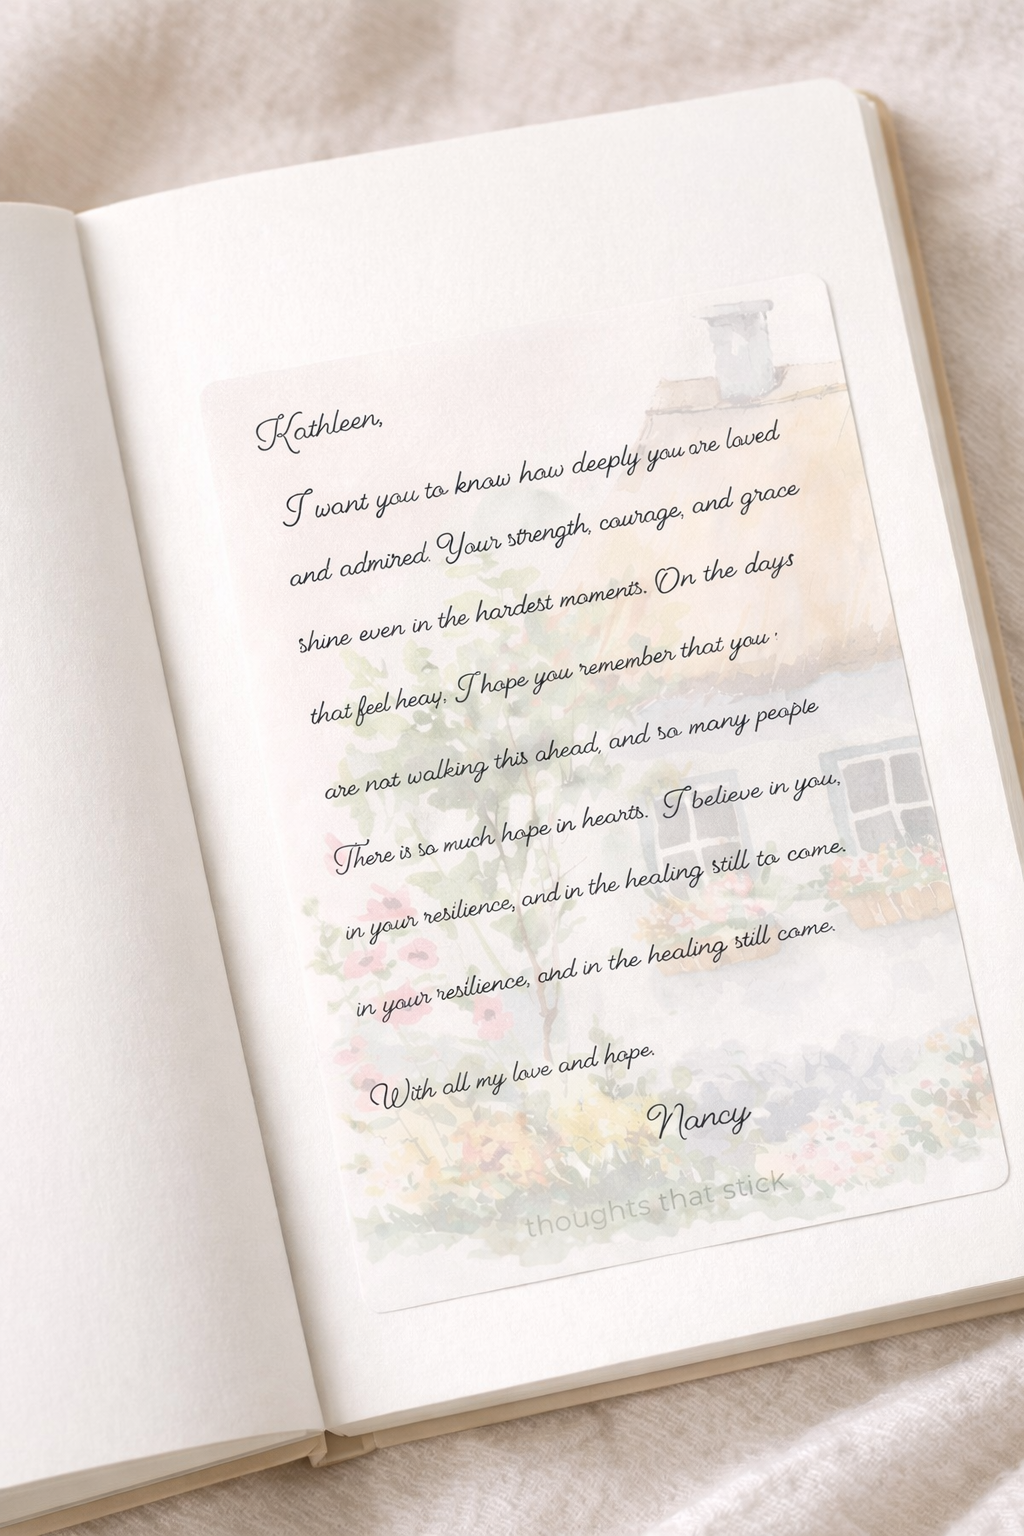 Kathleen,
I want you to know how deeply you are loved
and admired. Your strength, courage, and grace
shine even in the hardest moments. On the days
that feel heay, I hope you remember that you
are not walking this ahead, and so many people
There is so much hope in hearts. I believe in you,
in your resilience, and in the healing still to come.
in your resilience, and in the healing still come.
With all my love and hope.
Nancy
thoughts that stick